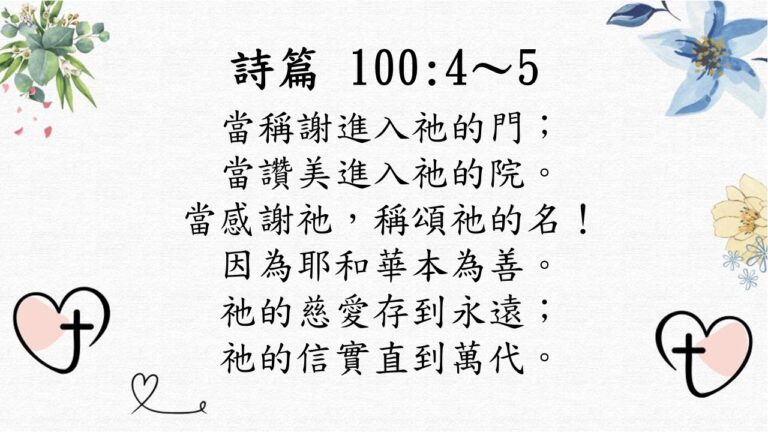 詩篇 100:4～5
當稱謝進入祂的門；
當讚美進入祂的院。
當感謝祂，稱頌祂的名！
因為耶和華本為善。
祂的慈愛存到永遠；
祂的信實直到萬代。